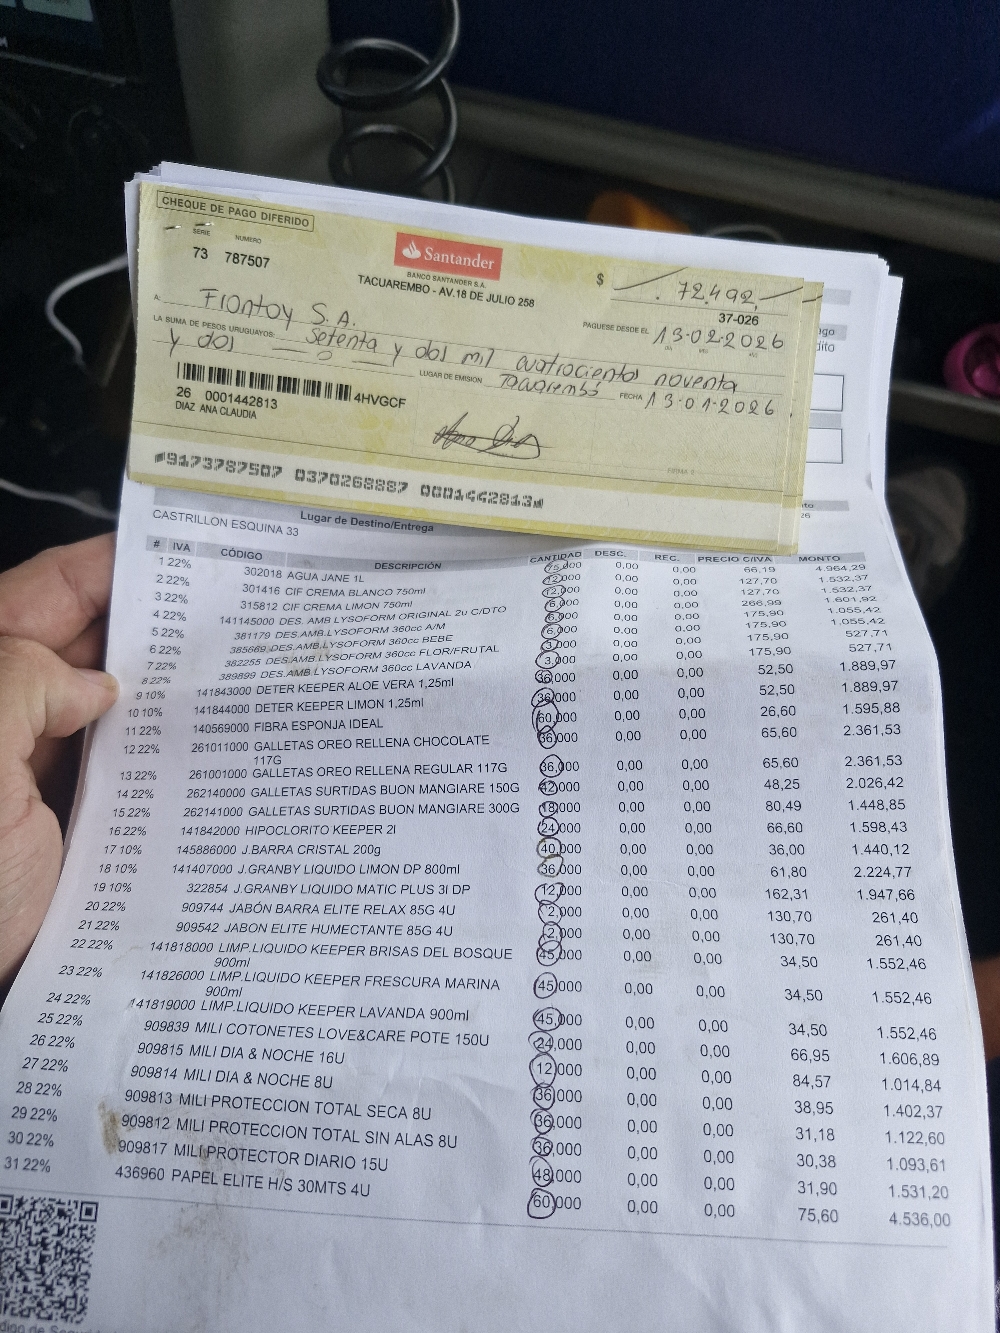 CHEQUE DE PAGO DIFERIDO
SERIE NUMERO
73 787507
Santander
BANCO SANTANDER S.A.
TACUAREMBO - AV.18 DE JULIO 258
$ 72.492
37-026
PAGUESE DESDE EL 13-02-2026
A: Frontoy S.A.
LA SUMA DE PESOS URUGUAYOS: Setenta y dos mil cuatrocientos noventa
y dos
LUGAR DE EMISION Tacuarembó FECHA 13-01-2026
4HVGCF
26 0001442813
DIAZ ANA CLAUDIA
FIRMA
9173787507 0370268887 0001442813
Lugar de Destino/Entrega
CASTRILLON ESQUINA 33
# IVA CÓDIGO DESCRIPCIÓN CANTIDAD DESC. REC. PRECIO C/IVA MONTO
1 22% 302018 AGUA JANE 1L 75,000 0,00 0,00 66,19 4.964,29
2 22% 301416 CIF CREMA BLANCO 750ml 12,000 0,00 0,00 127,70 1.532,37
3 22% 315812 CIF CREMA LIMON 750ml 12,000 0,00 0,00 127,70 1.532,37
4 22% 141145000 DES. AMB LYSOFORM ORIGINAL 2u C/DTO 6,000 0,00 0,00 266,99 1.601,92
5 22% 381179 DES.AMB.LYSOFORM 360cc A/M 6,000 0,00 0,00 175,90 1.055,42
6 22% 385669 DES.AMB.LYSOFORM 360cc BEBE 6,000 0,00 0,00 175,90 1.055,42
7 22% 382255 DES.AMB.LYSOFORM 360cc FLOR/FRUTAL 3,000 0,00 0,00 175,90 527,71
8 22% 389899 DES.AMB.LYSOFORM 360cc LAVANDA 3,000 0,00 0,00 175,90 527,71
9 10% 141843000 DETER KEEPER ALOE VERA 1,25ml 36,000 0,00 0,00 52,50 1.889,97
10 10% 141844000 DETER KEEPER LIMON 1,25ml 36,000 0,00 0,00 52,50 1.889,97
11 22% 140569000 FIBRA ESPONJA IDEAL 60,000 0,00 0,00 26,60 1.595,88
12 22% 261011000 GALLETAS OREO RELLENA CHOCOLATE 36,000 0,00 0,00 65,60 2.361,53
117G
13 22% 261001000 GALLETAS OREO RELLENA REGULAR 117G 36,000 0,00 0,00 65,60 2.361,53
14 22% 262140000 GALLETAS SURTIDAS BUON MANGIARE 150G 42,000 0,00 0,00 48,25 2.026,42
15 22% 262141000 GALLETAS SURTIDAS BUON MANGIARE 300G 18,000 0,00 0,00 80,49 1.448,85
16 22% 141842000 HIPOCLORITO KEEPER 2l 24,000 0,00 0,00 66,60 1.598,43
17 10% 145886000 J.BARRA CRISTAL 200g 40,000 0,00 0,00 36,00 1.440,12
18 10% 141407000 J.GRANBY LIQUIDO LIMON DP 800ml 36,000 0,00 0,00 61,80 2.224,77
19 10% 322854 J.GRANBY LIQUIDO MATIC PLUS 3l DP 12,000 0,00 0,00 162,31 1.947,66
20 22% 909744 JABÓN BARRA ELITE RELAX 85G 4U 2,000 0,00 0,00 130,70 261,40
21 22% 909542 JABON ELITE HUMECTANTE 85G 4U 2,000 0,00 0,00 130,70 261,40
22 22% 141818000 LIMP.LIQUIDO KEEPER BRISAS DEL BOSQUE 45,000 0,00 0,00 34,50 1.552,46
900ml
23 22% 141826000 LIMP.LIQUIDO KEEPER FRESCURA MARINA 45,000 0,00 0,00 34,50 1.552,46
900ml
24 22% 141819000 LIMP.LIQUIDO KEEPER LAVANDA 900ml 45,000 0,00 0,00 34,50 1.552,46
25 22% 909839 MILI COTONETES LOVE&CARE POTE 150U 24,000 0,00 0,00 66,95 1.606,89
26 22% 909815 MILI DIA & NOCHE 16U 12,000 0,00 0,00 84,57 1.014,84
27 22% 909814 MILI DIA & NOCHE 8U 36,000 0,00 0,00 38,95 1.402,37
28 22% 909813 MILI PROTECCION TOTAL SECA 8U 36,000 0,00 0,00 31,18 1.122,60
29 22% 909812 MILI PROTECCION TOTAL SIN ALAS 8U 36,000 0,00 0,00 30,38 1.093,61
30 22% 909817 MILI PROTECTOR DIARIO 15U 48,000 0,00 0,00 31,90 1.531,20
31 22% 436960 PAPEL ELITE H/S 30MTS 4U 60,000 0,00 0,00 75,60 4.536,00